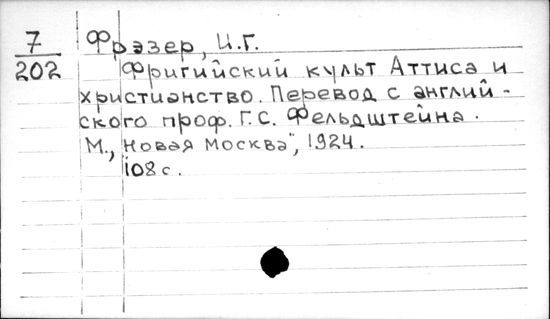 7 Фрэзер, И.Г.
202 Фригийский культ Аттиса и
христианство. Перевод с англий-
ского проф. Г.С. Фельдштейна.
М., "Новая Москва", 1924.
108 с.